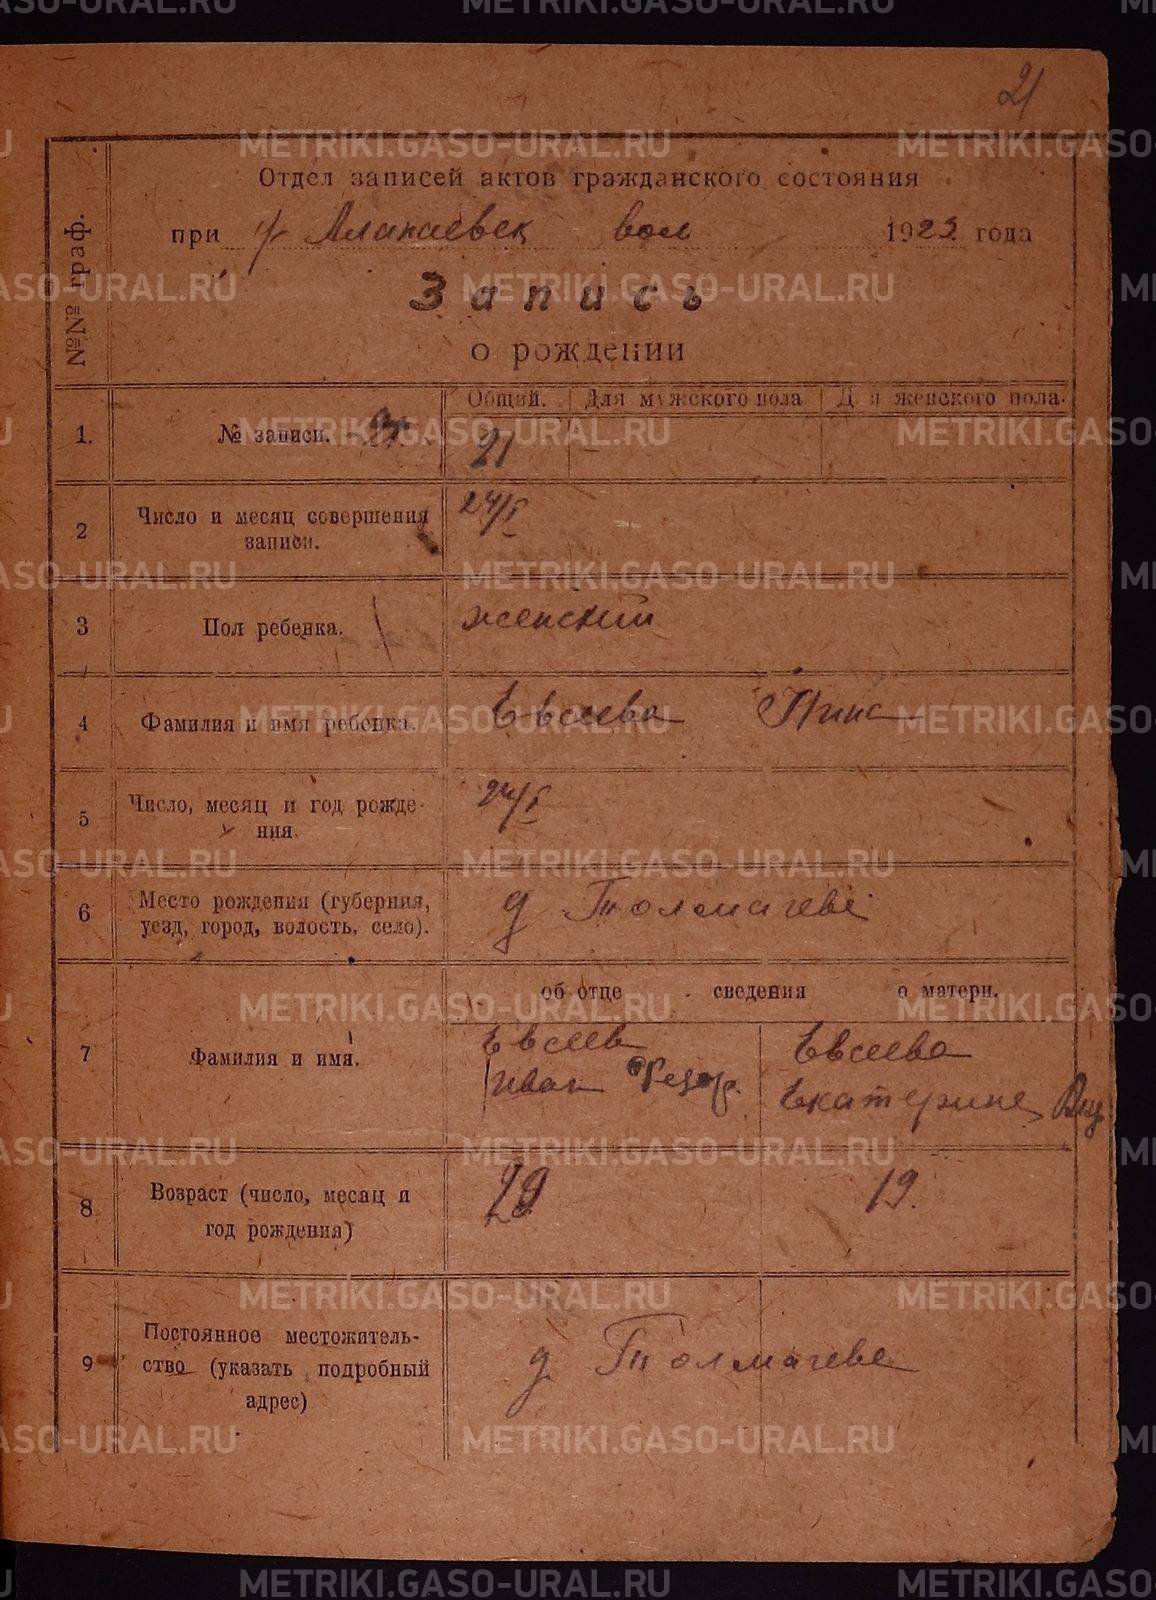 21
Отдел записей актов гражданского состояния
при у Алапаевск вол 1923 года
№№ граф.
Запись
о рождении
Общий. Для мужского пола Для женского пола.
1. № записи. 21
2 Число и месяц совершения 24/I
записи.
3 Пол ребенка. женский
4 Фамилия и имя ребенка. Евсеева Нина
5 Число, месяц и год рожде- 24/I
ния.
6 Место рождения (губерния, д Толмачеве
уезд, город, волость, село).
об отце сведения о матери.
7 Фамилия и имя. Евсеев Евсеева
Иван Федор. Екатерине
8 Возраст (число, месяц и 29 19.
год рождения)
9 Постоянное местожитель-
ство (указать подробный д Толмачеве
адрес)
METRIKI.GASO-URAL.RU